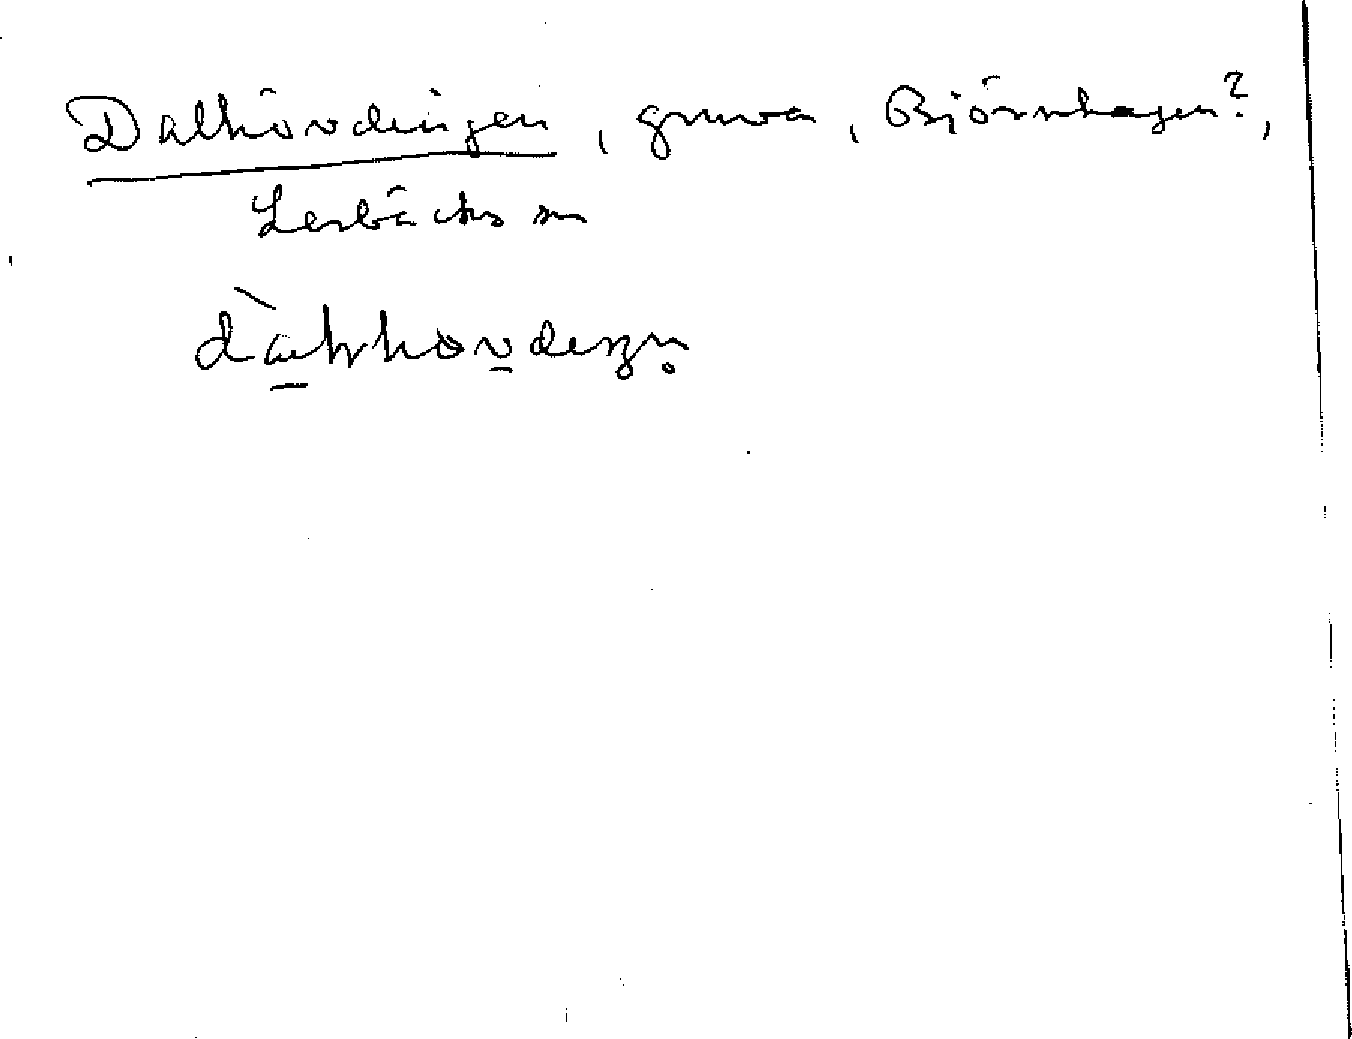 Dalhövdingen, gruva, Björnhagen?,
Lerbäcks sn